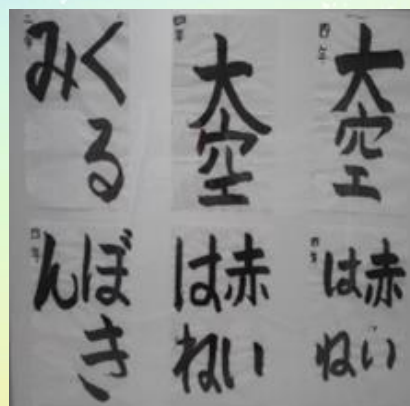 大空
四年
大空
四年
くる
み
赤い
はね
赤い
はね
ぼき
ん